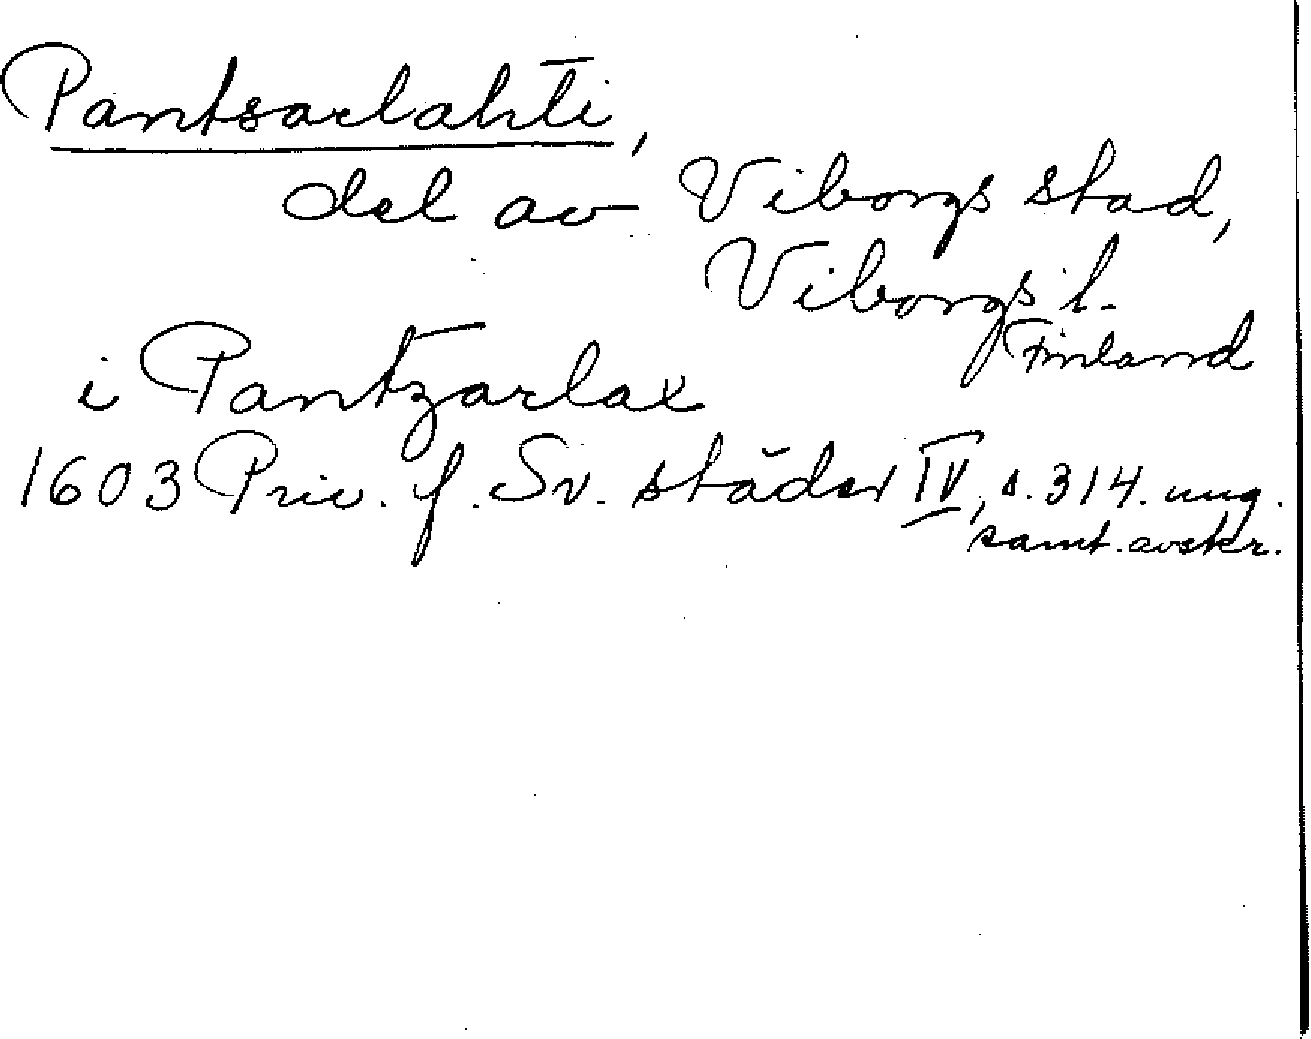 Pantsarlahti,
del av Viborgs stad,
Viborgs l.
Finland
i Pantzarlax
1603 Priv. f. Sv. städer IV, s. 314. ung.
samt. avskr.